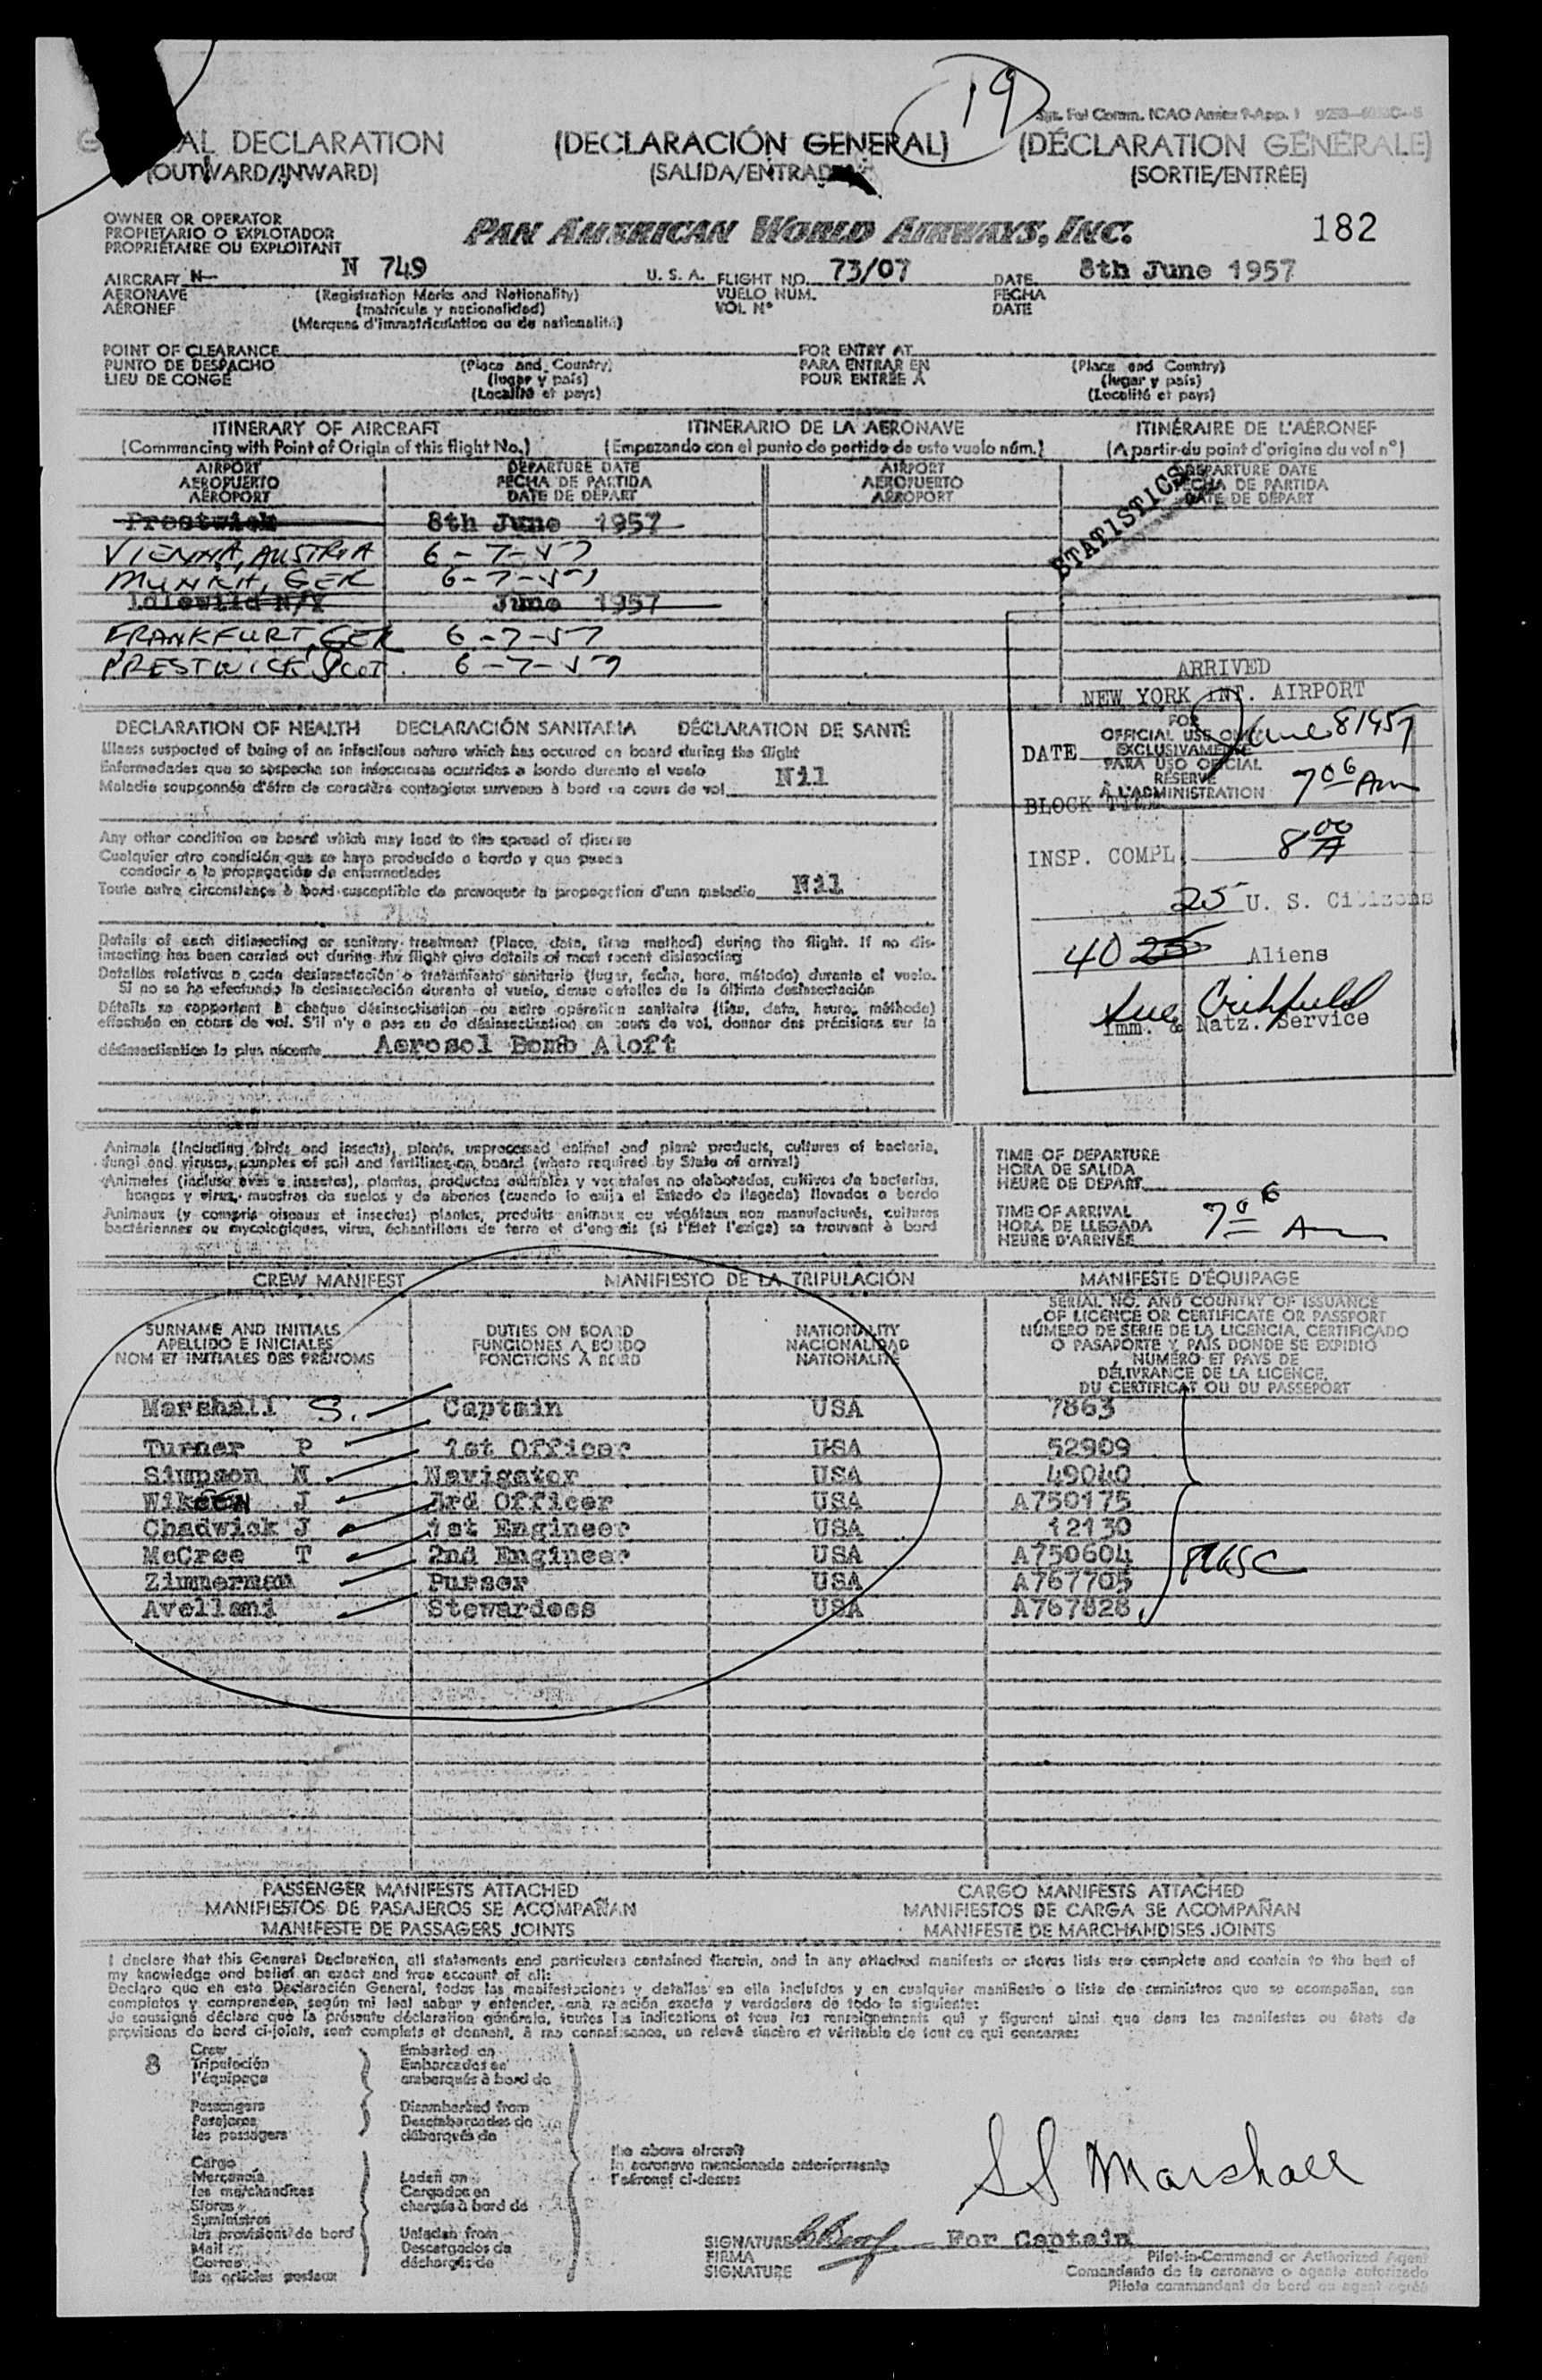 19
GENERAL DECLARATION (DECLARACIÓN GENERAL) (DÉCLARATION GÉNÉRALE)
(OUTWARD/INWARD) (SALIDA/ENTRADA) (SORTIE/ENTRÉE)
OWNER OR OPERATOR
PROPIETARIO O EXPLOTADOR
PROPRIÉTAIRE OU EXPLOITANT
PAN AMERICAN WORLD AIRWAYS, INC. 182
AIRCRAFT N- N 749 U. S. A. FLIGHT NO. 73/07 DATE 8th June 1957
AERONAVE (Registration Marks and Nationality) VUELO NUM. FECHA
AÉRONEF (matrícula y nacionalidad) VOL N° DATE
(Marques d'immatriculation ou de nationalité)
POINT OF CLEARANCE FOR ENTRY AT
PUNTO DE DESPACHO (Place and Country) PARA ENTRAR EN (Place and Country)
LIEU DE CONGÉ (lugar y país) POUR ENTRÉE À (lugar y país)
(Localité et pays) (Localité et pays)
ITINERARY OF AIRCRAFT ITINERARIO DE LA AERONAVE ITINÉRAIRE DE L'AÉRONEF
(Commencing with Point of Origin of this flight No.) (Empezando con el punto de partida de este vuelo núm.) (A partir du point d'origine du vol n°)
AIRPORT DEPARTURE DATE AIRPORT DEPARTURE DATE
AEROPUERTO FECHA DE PARTIDA AEROPUERTO FECHA DE PARTIDA
AÉROPORT DATE DE DÉPART AÉROPORT DATE DE DÉPART
STATISTICS
Prestwick 8th June 1957
VIENNA, AUSTRIA 6-7-57
MUNICH, GER 6-7-57
Idlewild N/Y June 1957
FRANKFURT, GER 6-7-57
PRESTWICK Scot. 6-7-57
ARRIVED
NEW YORK INT. AIRPORT
DECLARATION OF HEALTH DECLARACIÓN SANITARIA DÉCLARATION DE SANTÉ
Illness suspected of being of an infectious nature which has occured on board during the flight
Enfermedades que se sospecha son infecciosas ocurridas a bordo durante el vuelo
Maladie soupçonnée d'être de caractère contagieux survenue à bord en cours de vol Nil
FOR
OFFICIAL USE ONLY
EXCLUSIVAMENTE
PARA USO OFICIAL
RÉSERVÉ
À L'ADMINISTRATION
DATE June 8 1957
BLOCK TIME 7 06 Am
Any other condition on board which may lead to the spread of disease
Cualquier otra condición que se haya producido a bordo y que pueda
conducir a la propagación de enfermedades
Toute autre circonstance à bord susceptible de provoquer la propagation d'une maladie Nil
INSP. COMPL. 8 00 A
25 U. S. Citizens
40 25 Aliens
Imm. & Natz. Service
Details of each disinsecting or sanitary treatment (Place, date, time method) during the flight. If no dis-
insecting has been carried out during the flight give details of most recent disinsecting
Detalles relativos a cada desinsectación o tratamiento sanitario (lugar, fecha, hora, método) durante el vuelo.
Si no se ha efectuado la desinsectación durante el vuelo, dense detalles de la última desinsectación
Détails se rapportant à chaque désinsectisation ou autre opération sanitaire (lieu, date, heure, méthode)
effectuée en cours de vol. S'il n'y a pas eu de désinsectisation en cours de vol, donner des précisions sur la
désinsectisation la plus récente Aerosol Bomb Aloft
Animals (including birds and insects), plants, unprocessed animal and plant products, cultures of bacteria,
fungi and viruses, samples of soil and fertilizer on board (where required by State of arrival)
Animales (incluso aves e insectos), plantas, productos animales y vegetales no elaborados, cultivos de bacterias,
hongos y virus, muestras de suelos y de abonos (cuando lo exija el Estado de llegada) llevados a bordo
Animaux (y compris oiseaux et insectes) plantes, produits animaux ou végétaux non manufacturés, cultures
bactériennes ou mycologiques, virus, échantillons de terre et d'engrais (si l'État l'exige) se trouvant à bord
TIME OF DEPARTURE
HORA DE SALIDA
HEURE DE DÉPART
TIME OF ARRIVAL
HORA DE LLEGADA
HEURE D'ARRIVÉE 7 06 Am
CREW MANIFEST MANIFIESTO DE LA TRIPULACIÓN MANIFESTE D'ÉQUIPAGE
SURNAME AND INITIALS DUTIES ON BOARD NATIONALITY
APELLIDO E INICIALES FUNCIONES A BORDO NACIONALIDAD
NOM ET INITIALES DES PRÉNOMS FONCTIONS À BORD NATIONALITÉ
SERIAL NO. AND COUNTRY OF ISSUANCE
OF LICENCE OR CERTIFICATE OR PASSPORT
NÚMERO DE SERIE DE LA LICENCIA, CERTIFICADO
O PASAPORTE Y PAÍS DONDE SE EXPIDIÓ
NUMÉRO ET PAYS DE
DÉLIVRANCE DE LA LICENCE,
DU CERTIFICAT OU DU PASSEPORT
Marshall S. Captain USA 7863
Turner P 1st Officer USA 52909
Simpson N Navigator USA 49040
J 3rd Officer USA A750175
Chadwick J 1st Engineer USA 12130
McCree T 2nd Engineer USA A750604
Zimmerman Purser USA A767705
Avellani Stewardess USA A767828
PASSENGER MANIFESTS ATTACHED CARGO MANIFESTS ATTACHED
MANIFIESTOS DE PASAJEROS SE ACOMPAÑAN MANIFIESTOS DE CARGA SE ACOMPAÑAN
MANIFESTE DE PASSAGERS JOINTS MANIFESTE DE MARCHANDISES JOINTS
I declare that this General Declaration, all statements and particulars contained therein, and in any attached manifests or stores lists are complete and contain to the best of
my knowledge and belief an exact and true account of all:
Declaro que en esta Declaración General, todas las manifestaciones y detalles en ella incluidos y en cualquier manifiesto o lista de suministros que se acompañan, son
completos y comprenden, según mi leal saber y entender, una relación exacta y verdadera de todo lo siguiente:
Je soussigné déclare que la présente déclaration générale, toutes les indications et tous les renseignements qui y figurent ainsi que dans les manifestes ou états de
provisions de bord ci-joints, sont complets et donnent, à ma connaissance, un relevé sincère et véritable de tout ce qui concerne:
8 Crew Embarked on
Tripulación Embarcados en
l'équipage embarqués à bord de
Passengers Disembarked from
Pasajeros Desembarcados de
les passagers débarqués de
the above aircraft
la aeronave mencionada anteriormente
l'aéronef ci-dessus
Cargo
Mercancía Laden on
les marchandises Cargados en
Stores chargés à bord de
Suministros
les provisions de bord Unladen from
Mail Descargados de
Correo déchargés de
les articles postaux
S S Marshall
SIGNATURE For Captain
FIRMA
SIGNATURE
Pilot-in-Command or Authorized Agent
Comandante de la aeronave o agente autorizado
Pilote commandant de bord ou agent agréé